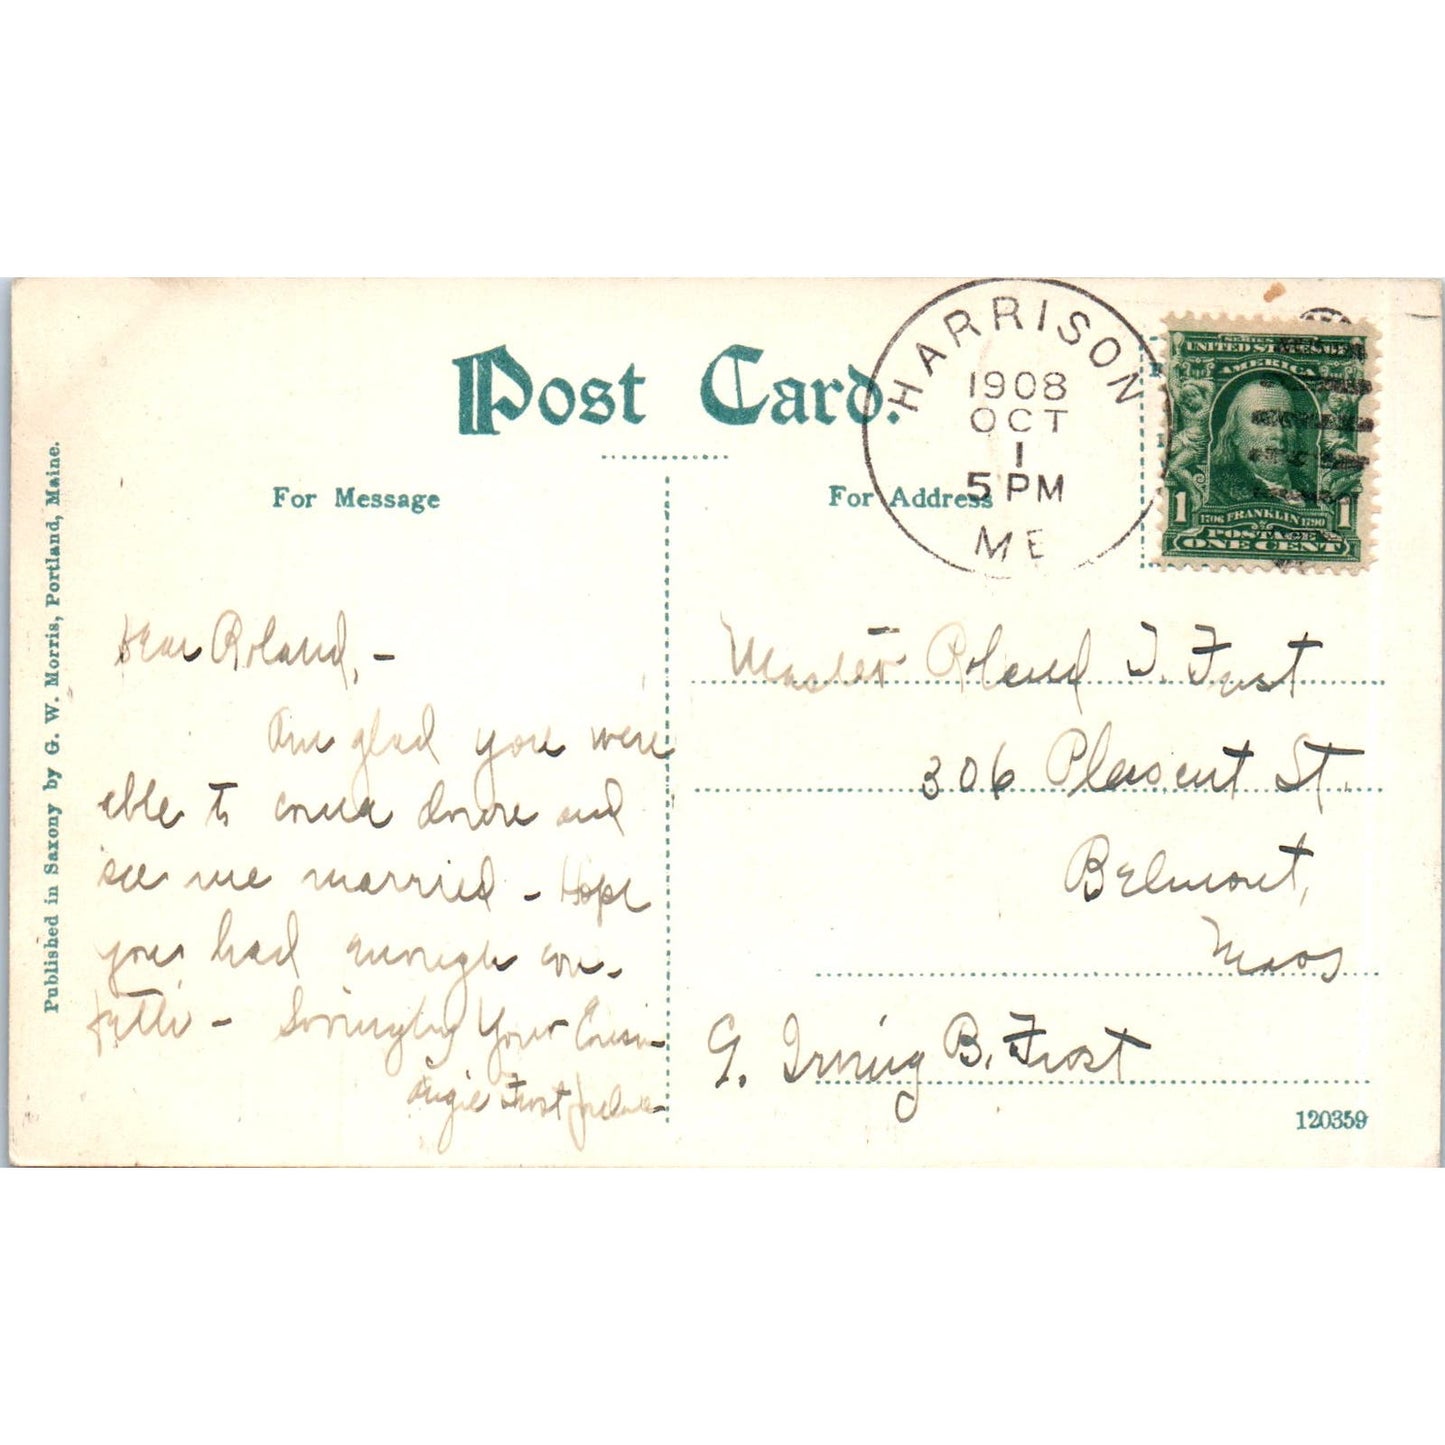 Post Card.
For Message
For Address
HARRISON
1908
OCT
1
5 PM
ME
SERIES 1902
UNITED STATES OF
AMERICA
1 1
1706 FRANKLIN 1790
POSTAGE
ONE CENT
Published in Saxony by G. W. Morris, Portland, Maine.
Dear Roland, -
Am glad you were
able to come down and
see me married - Hope
you had enough con-
fetti - Lovingly Your Cousin
Angie Frost
Master Roland T. Frost
306 Pleasent St.
Belmont,
Mass
℅ Irving B. Frost
120359